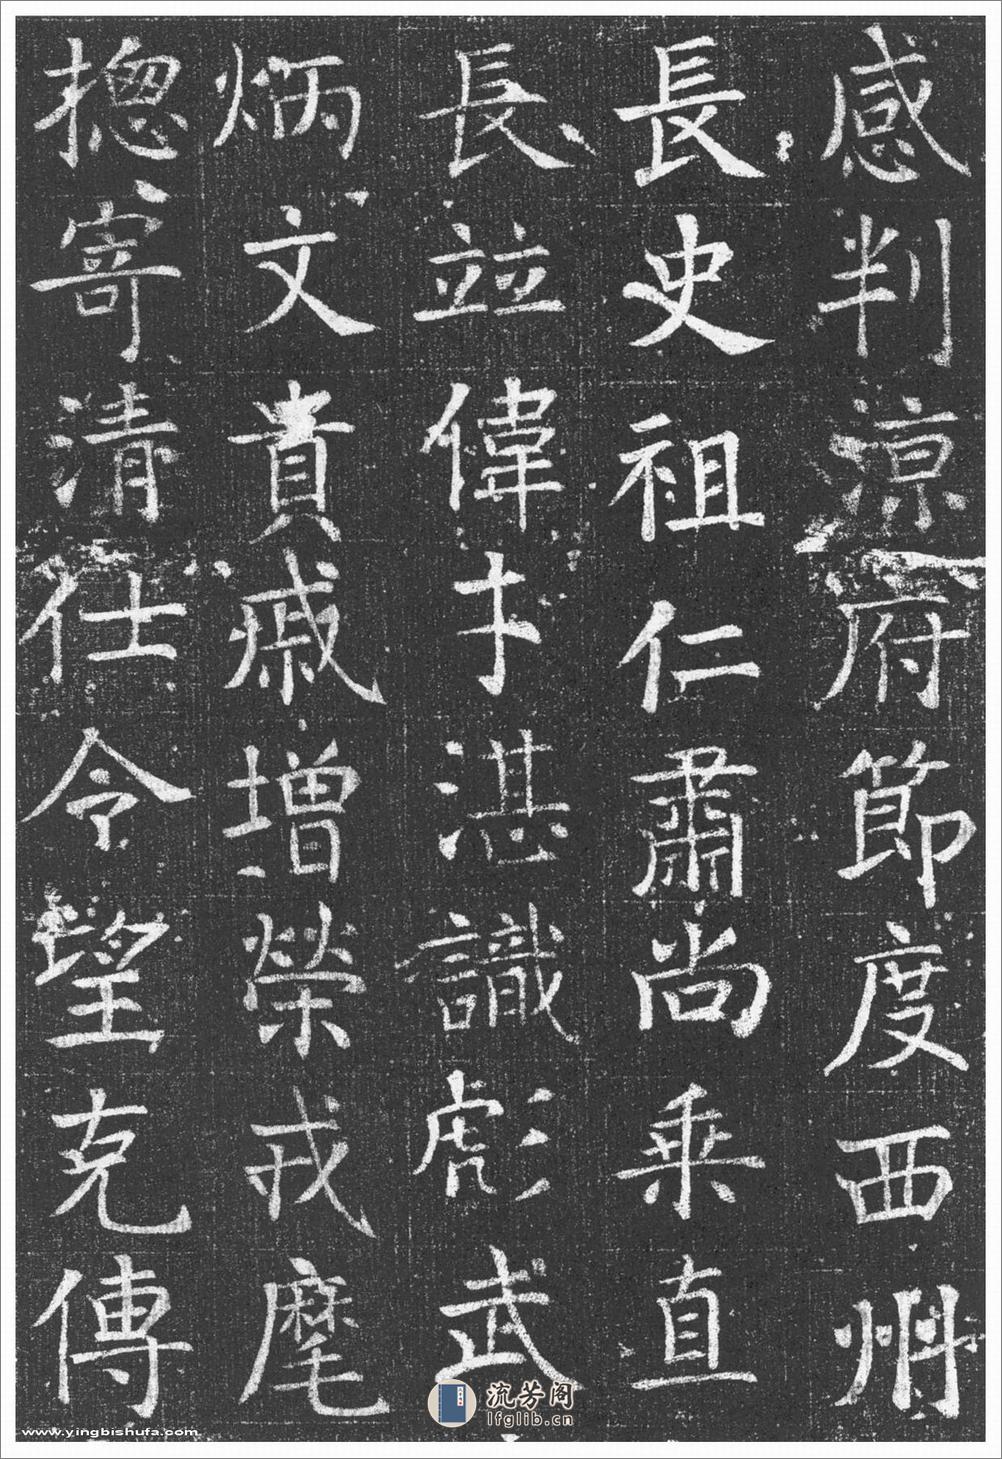 感判涼府節度西州
長史祖仁肅尚乗直
長並偉才湛識彪武
炳文貴戚增榮戎麾
摠寄清仕令望克傳
流芳阁
lfglib.cn
www.yingbishufa.com